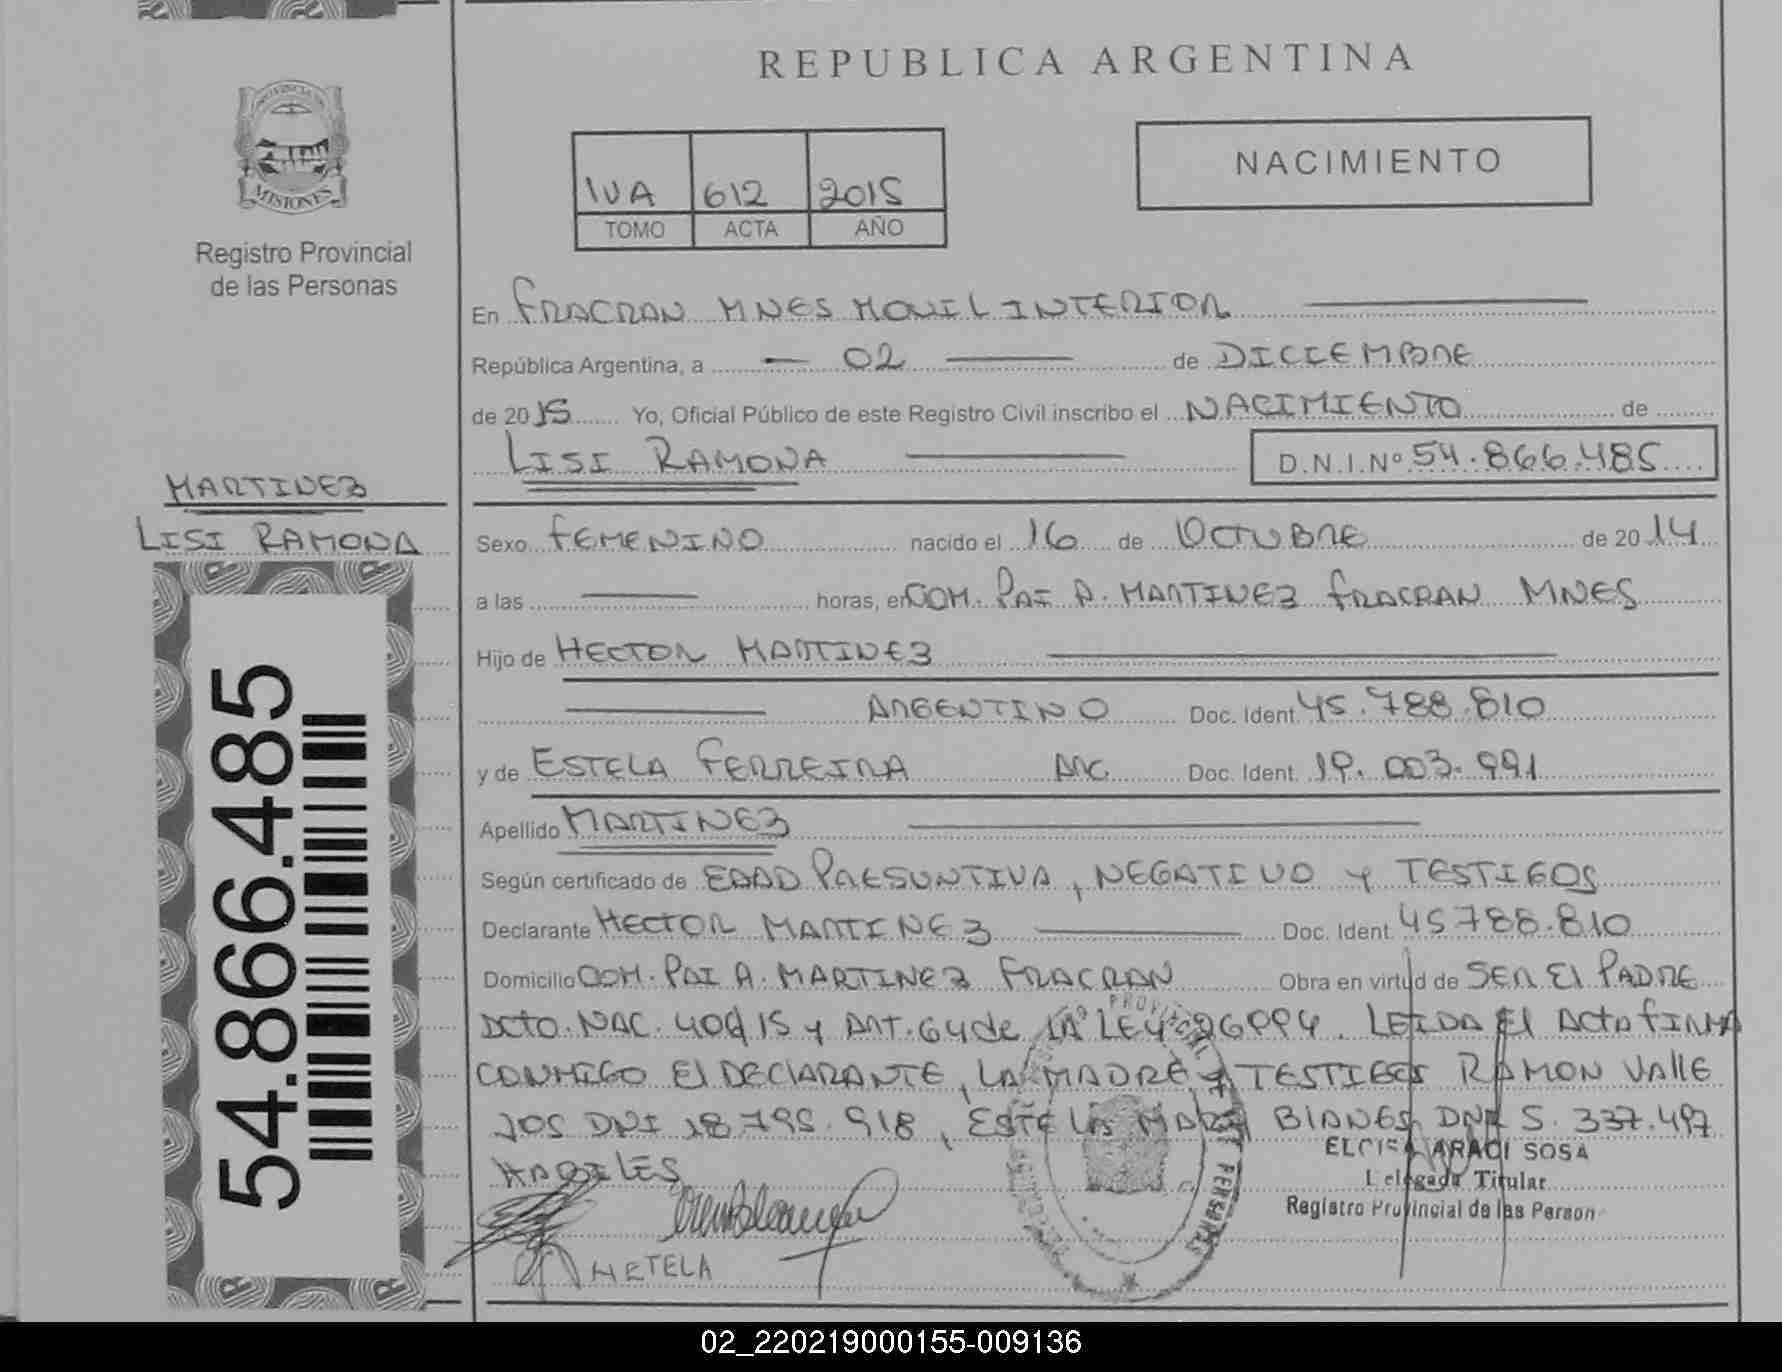 REPUBLICA ARGENTINA
PROVINCIA DE
MISIONES
Registro Provincial
de las Personas
IVA 612 2015
TOMO ACTA AÑO
NACIMIENTO
En FRACRAN MNES MOVIL INTERIOR
República Argentina, a 02 de DICIEMBRE
de 2015 Yo, Oficial Público de este Registro Civil inscribo el NACIMIENTO de
LISI RAMONA D.N.I.Nº 54.866.485
MARTINEZ
LISI RAMONA
54.866.485
Sexo FEMENINO nacido el 16 de OCTUBRE de 2014
a las horas, en COM. PAI A. MARTINEZ FRACRAN MNES
Hijo de HECTOR MARTINEZ
ARGENTINO Doc. Ident. 45.788.810
y de ESTELA FERREIRA ARG. Doc. Ident. 19.003.991
Apellido MARTINEZ
Según certificado de EDAD PRESUNTIVA, NEGATIVO y TESTIGOS
Declarante HECTOR MARTINEZ Doc. Ident. 45788.810
Domicilio COM. PAI A. MARTINEZ FRACRAN Obra en virtud de SER El PADRE
DCTO. NAC. 406/15 y ART. 64 de LA LEY 26994. LEIDA El ACTA FIRMA
CONMIGO El DECLARANTE, LA MADRE y TESTIGOS RAMON VALLE
JOS DNI 18.795.918, ESTELA MARY BIANES DNI 5.337.497
HABILES
ELCIRA ARACI SOSA
Delegada Titular
Registro Provincial de las Person
HETELA
02_220219000155-009136